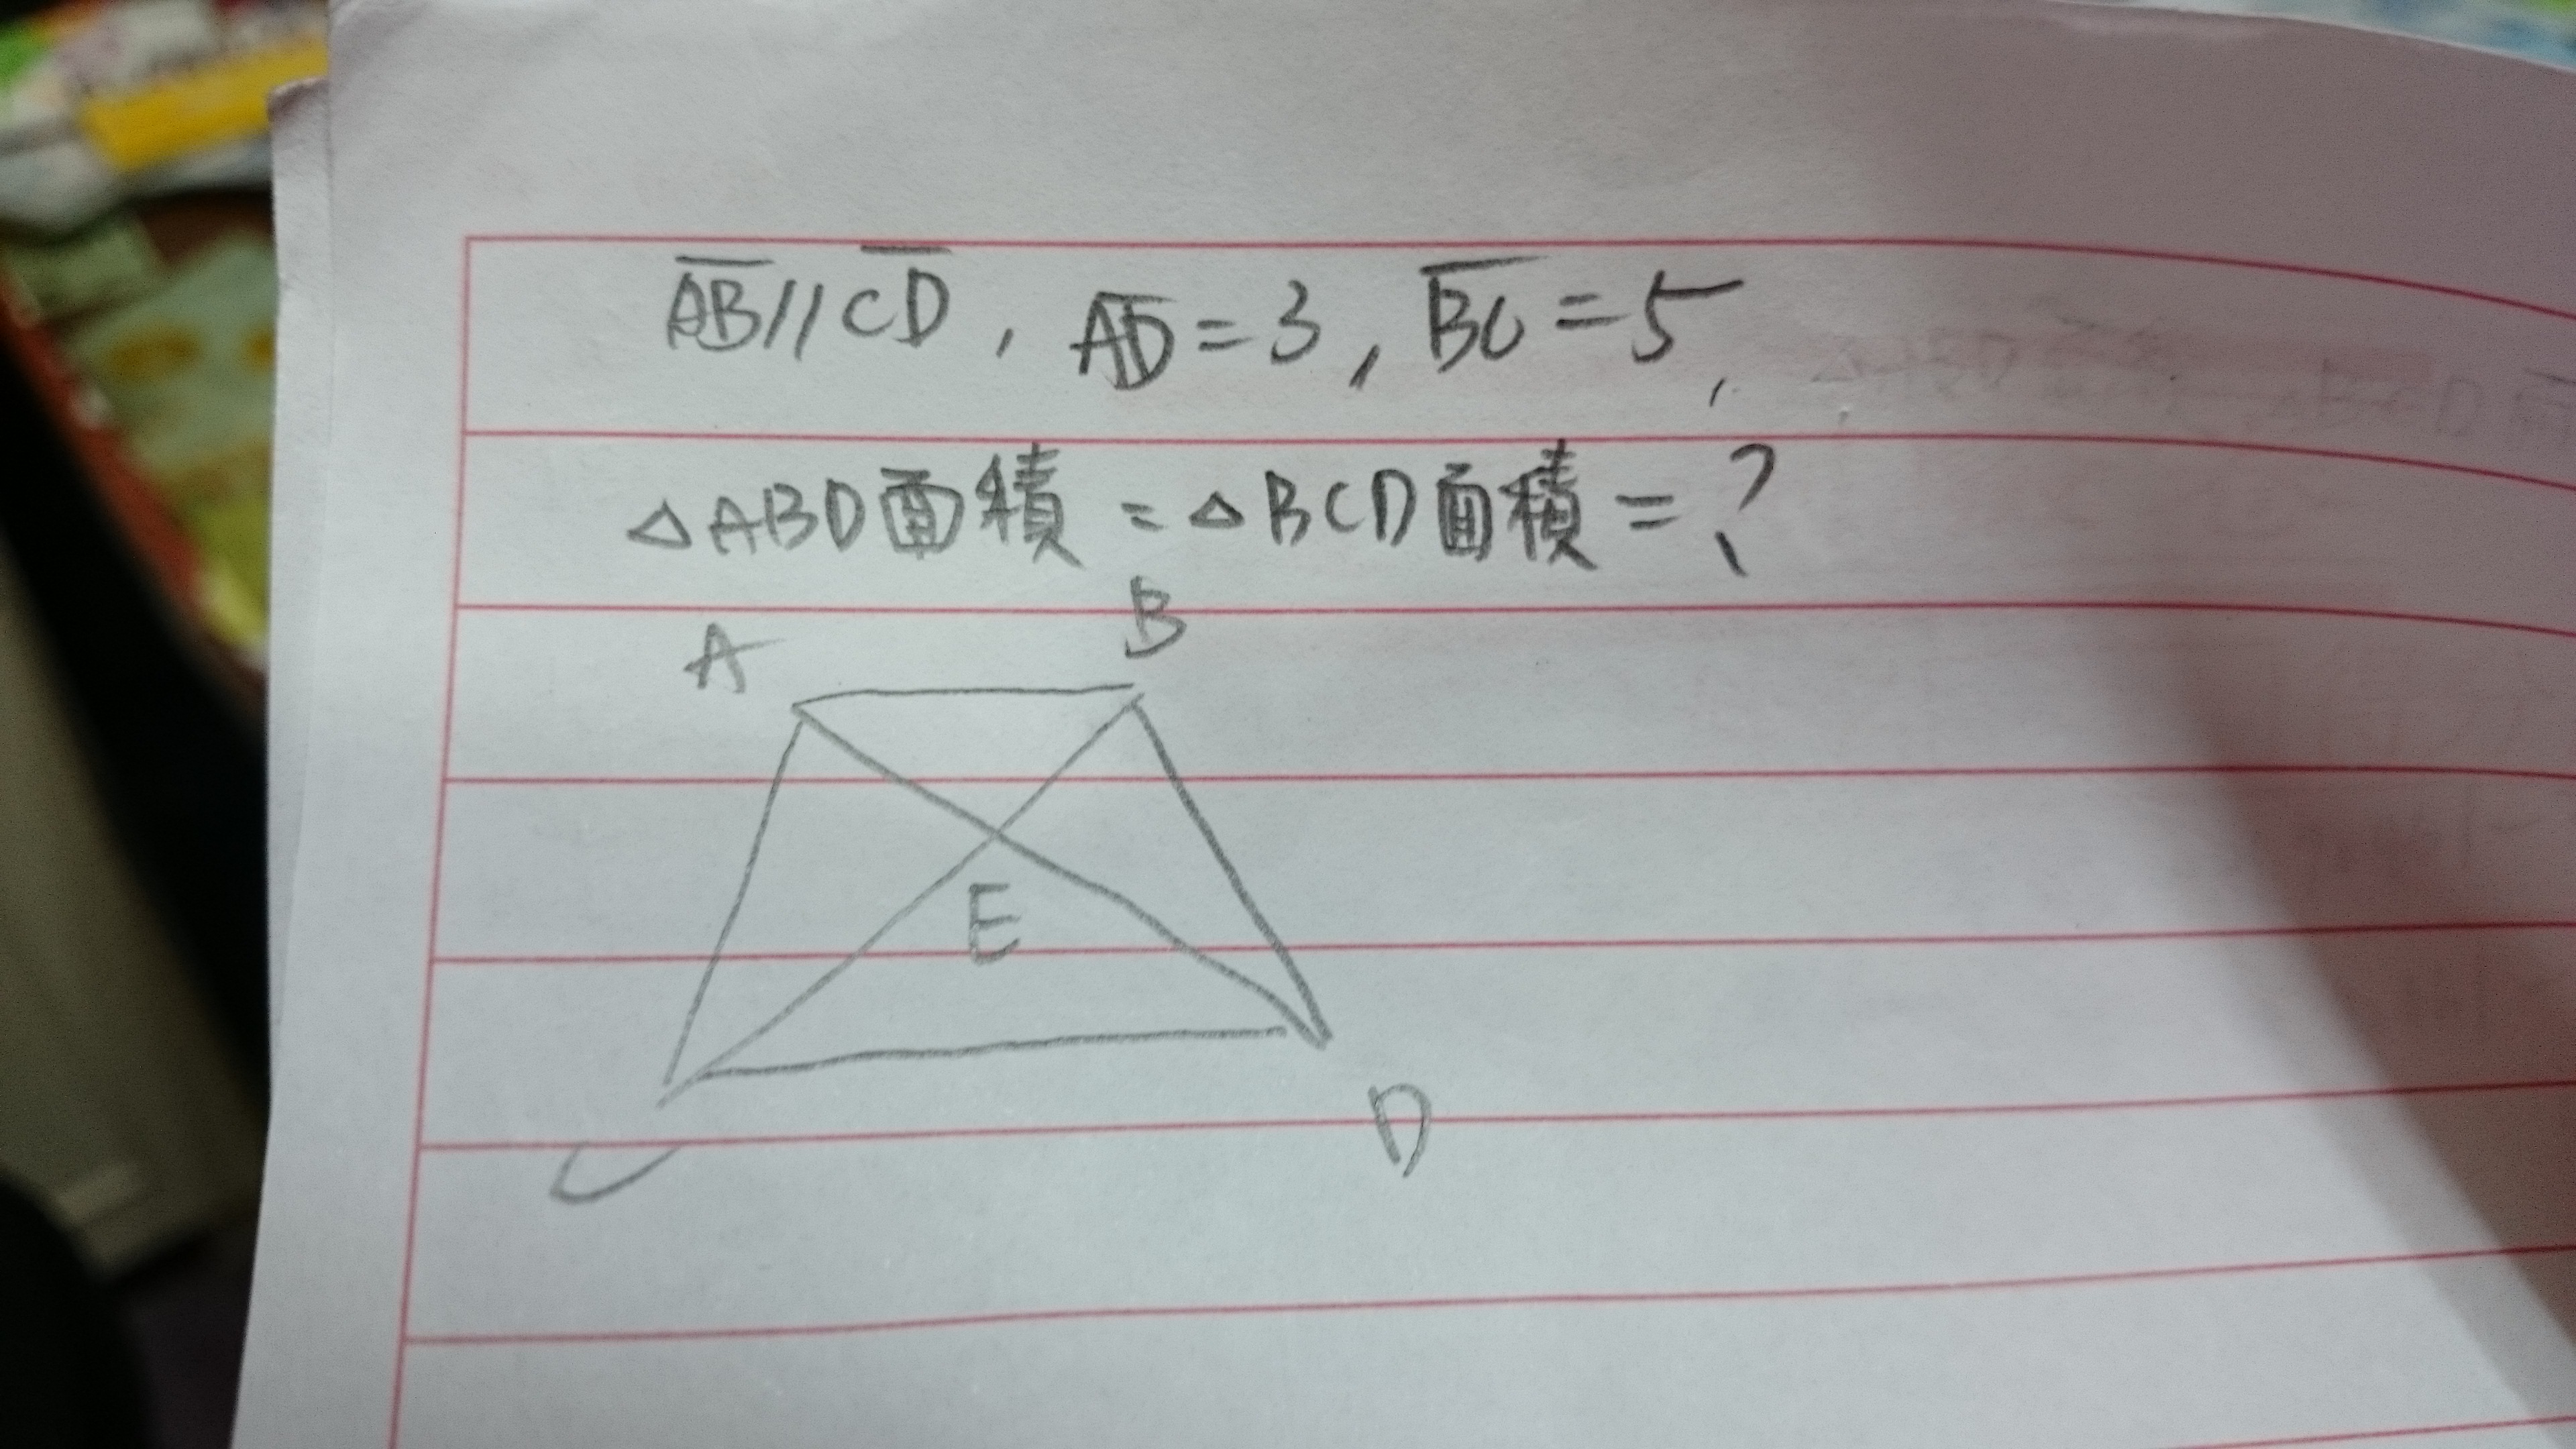 AB//CD, AD=3, BC=5,
△ABD面積=△BCD面積=?
A B
E
C D